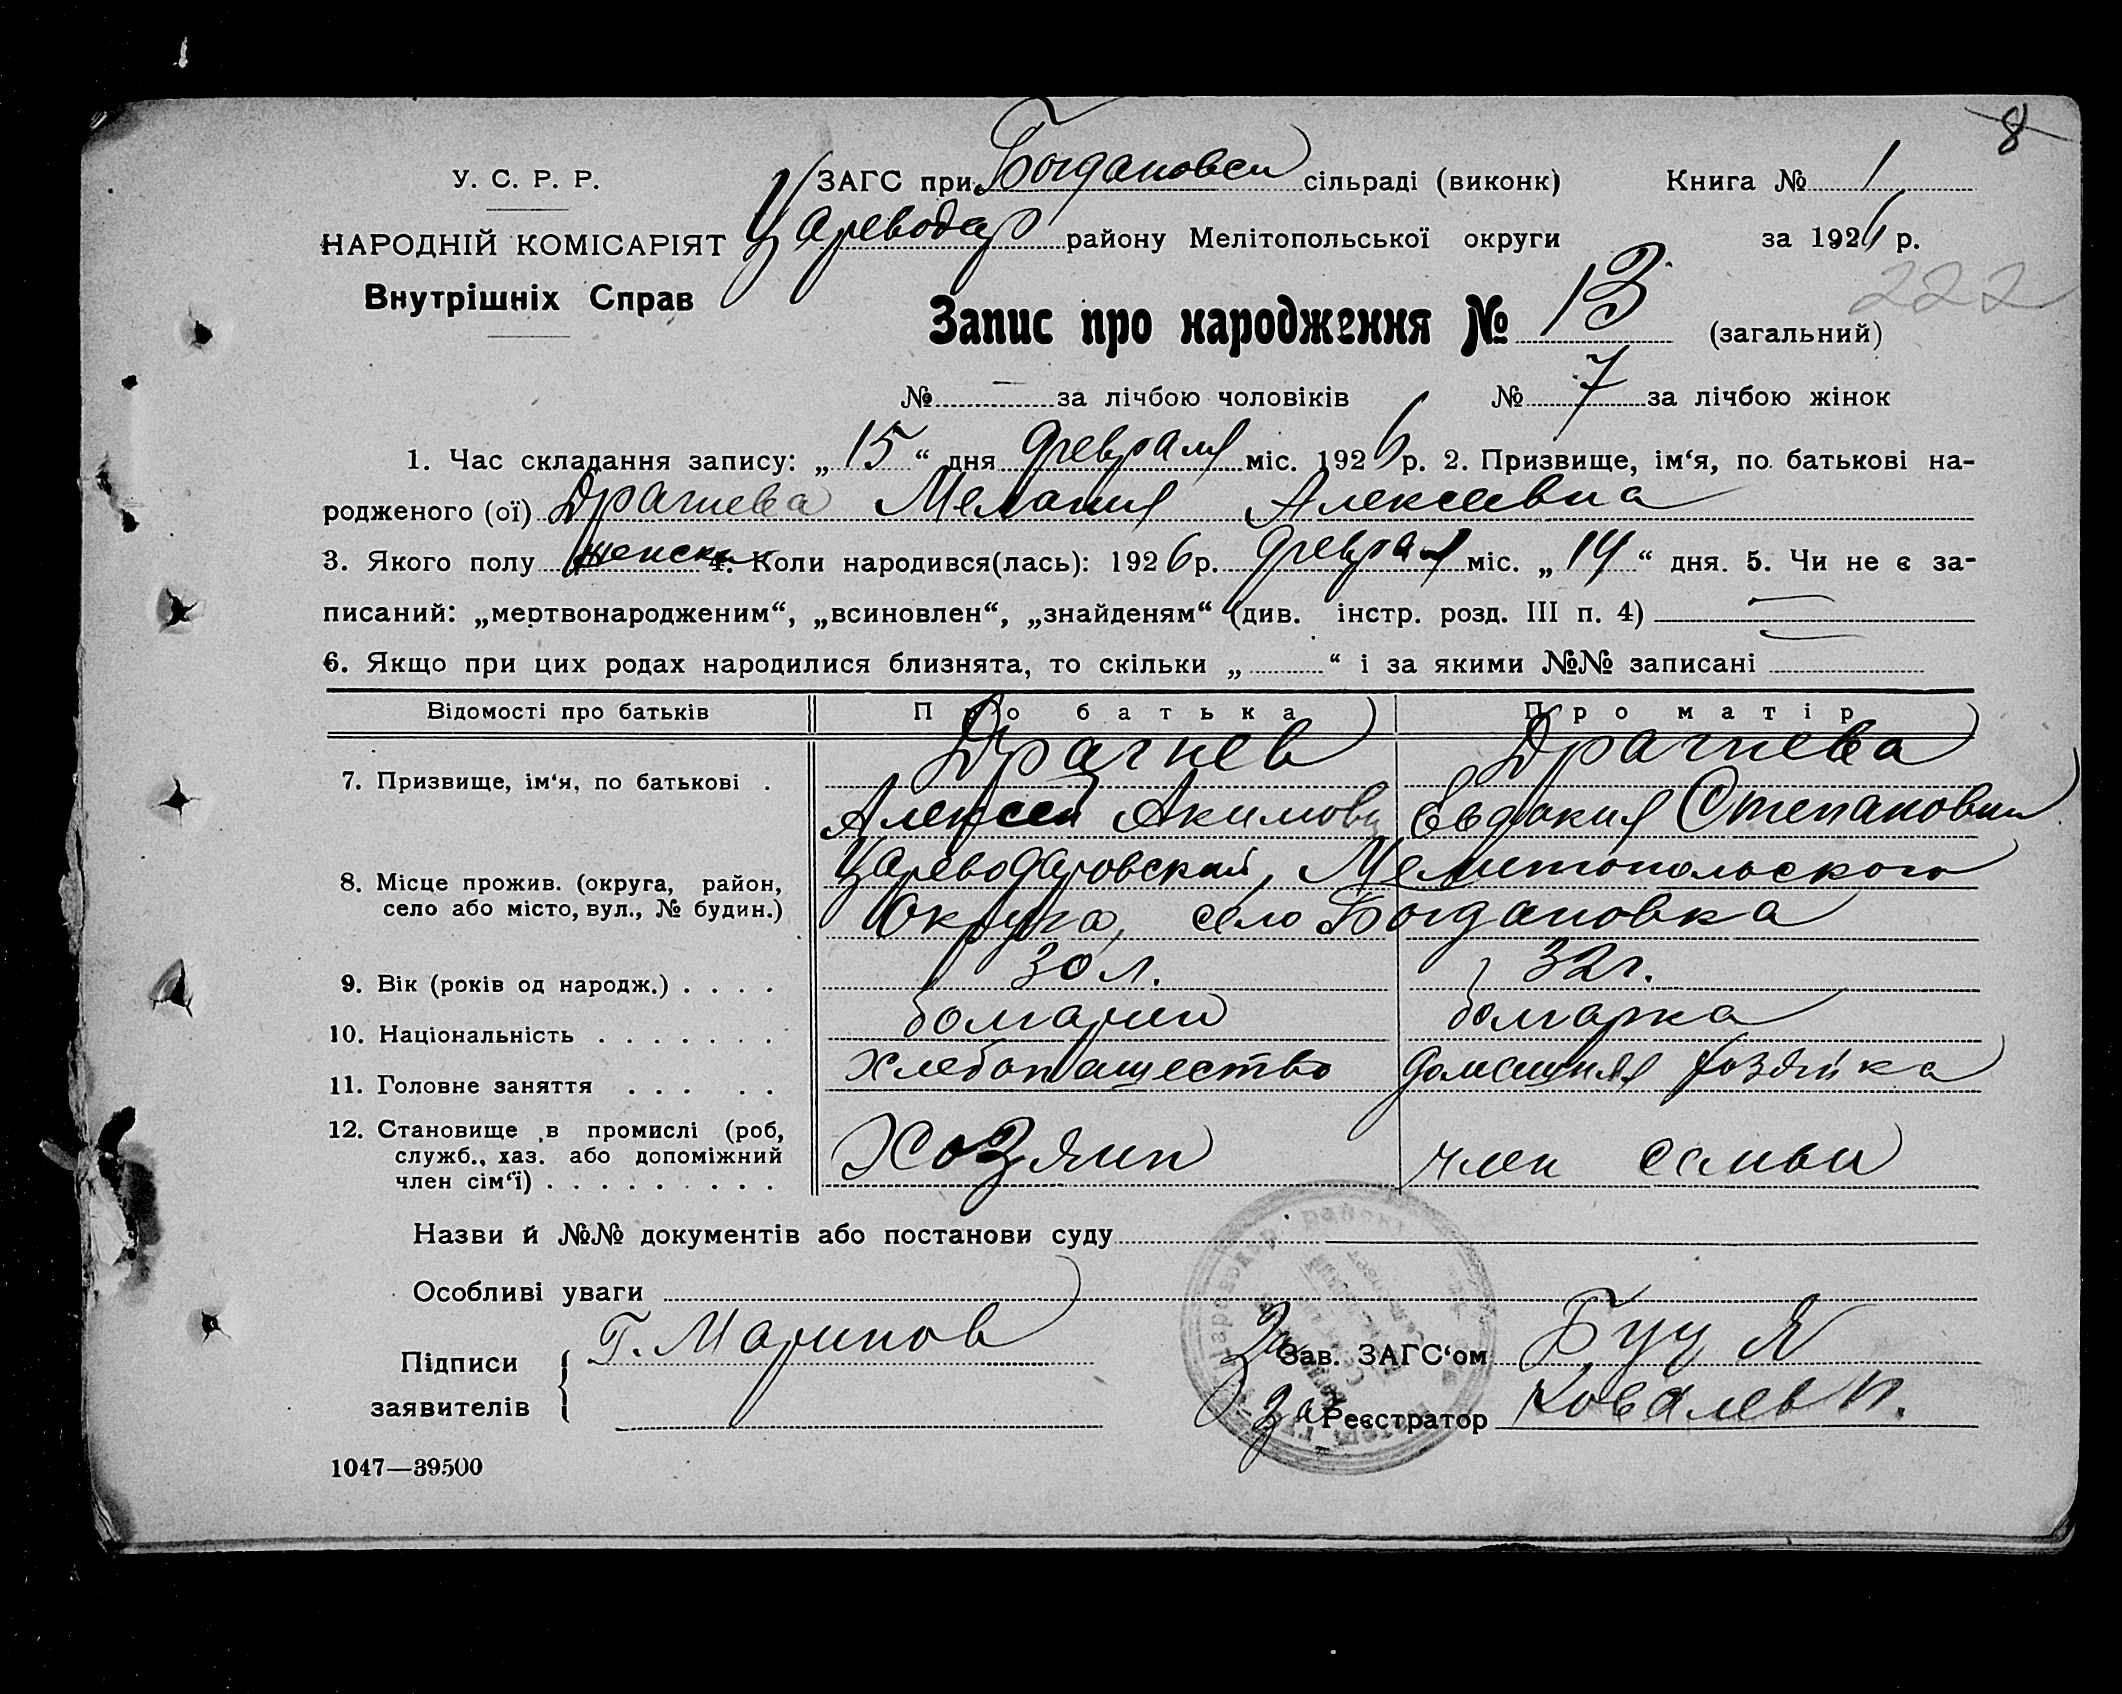 8
У. С. Р. Р.
ЗАГС при Богдановск сільраді (виконк) Книга № 1
НАРОДНІЙ КОМІСАРІЯТ Цареводар району Мелітопольської округи за 1926 р.
Внутрішніх Справ
222
Запис про народження № 13 (загальний)
№ — за лічбою чоловіків № 7 за лічбою жінок
1. Час складання запису: „15“ дня февраля міс. 1926 р. 2. Призвище, ім‘я, по батькові на-
родженого (ої) Драгнева Мелания Алексеевна
3. Якого полу женск 4. Коли народився(лась): 1926 р. февраля міс. „14“ дня. 5. Чи не є за-
писаний: „мертвонародженим“, „всиновлен“, „знайденям“ (див. інстр. розд. III п. 4) —
6. Якщо при цих родах народилися близнята, то скільки „ “ і за якими №№ записані —
Відомості про батьків Про батька Про матір
Драгнев Драгнева
7. Призвище, ім‘я, по батькові .
Алексей Акимов Евдокия Степановн
Цареводаровский, Мелитопольского
8. Місце прожив. (округа, район,
село або місто, вул., № будин.)
Округа, село Богдановка
9. Вік (років од народж.) . . . . 30 л. 32 г.
10. Національність . . . . . . . болгарин болгарка
11. Головне заняття . . . . . хлебопашество домашняя хозяйка
12. Становище в промислі (роб,
служб., хаз. або допоміжний
член сім‘ї) . . . . . . . . . Хозяин член семьи
Назви й №№ документів або постанови суду
Особливі уваги
Підписи
заявителів
Г. Маринов
За Зав. ЗАГС‘ом Буц Я
за Реєстратор Ковалев П.
1047—39500